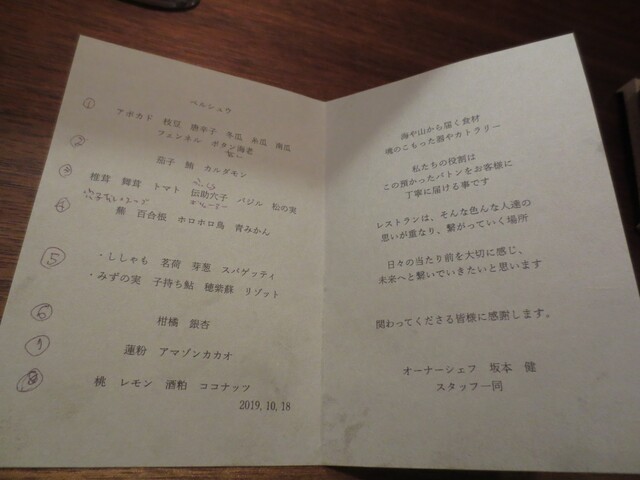 ペルシュウ
① アボカド 枝豆 唐辛子 冬瓜 糸瓜 南瓜
フェンネル ボタン海老
② 茄子 鮑 カルダモン
③ 椎茸 舞茸 トマト 伝助穴子 バジル 松の実
④ 鱧 百合根 ホロホロ鳥 青みかん
⑤ ・ししゃも 茗荷 芽葱 スパゲッティ
・みずの実 子持ち鮎 穂紫蘇 リゾット
⑥ 柑橘 銀杏
⑦ 蓮粉 アマゾンカカオ
⑧ 桃 レモン 酒粕 ココナッツ
2019, 10, 18
海や山から届く食材
魂のこもった器やカトラリー
私たちの役割は
この預かったバトンをお客様に
丁寧に届ける事です
レストランは、そんな色んな人達の
思いが重なり、繋がっていく場所
日々の当たり前を大切に感じ、
未来へと繋いでいきたいと思います
関わってくださる皆様に感謝します。
オーナーシェフ 坂本 健
スタッフ一同